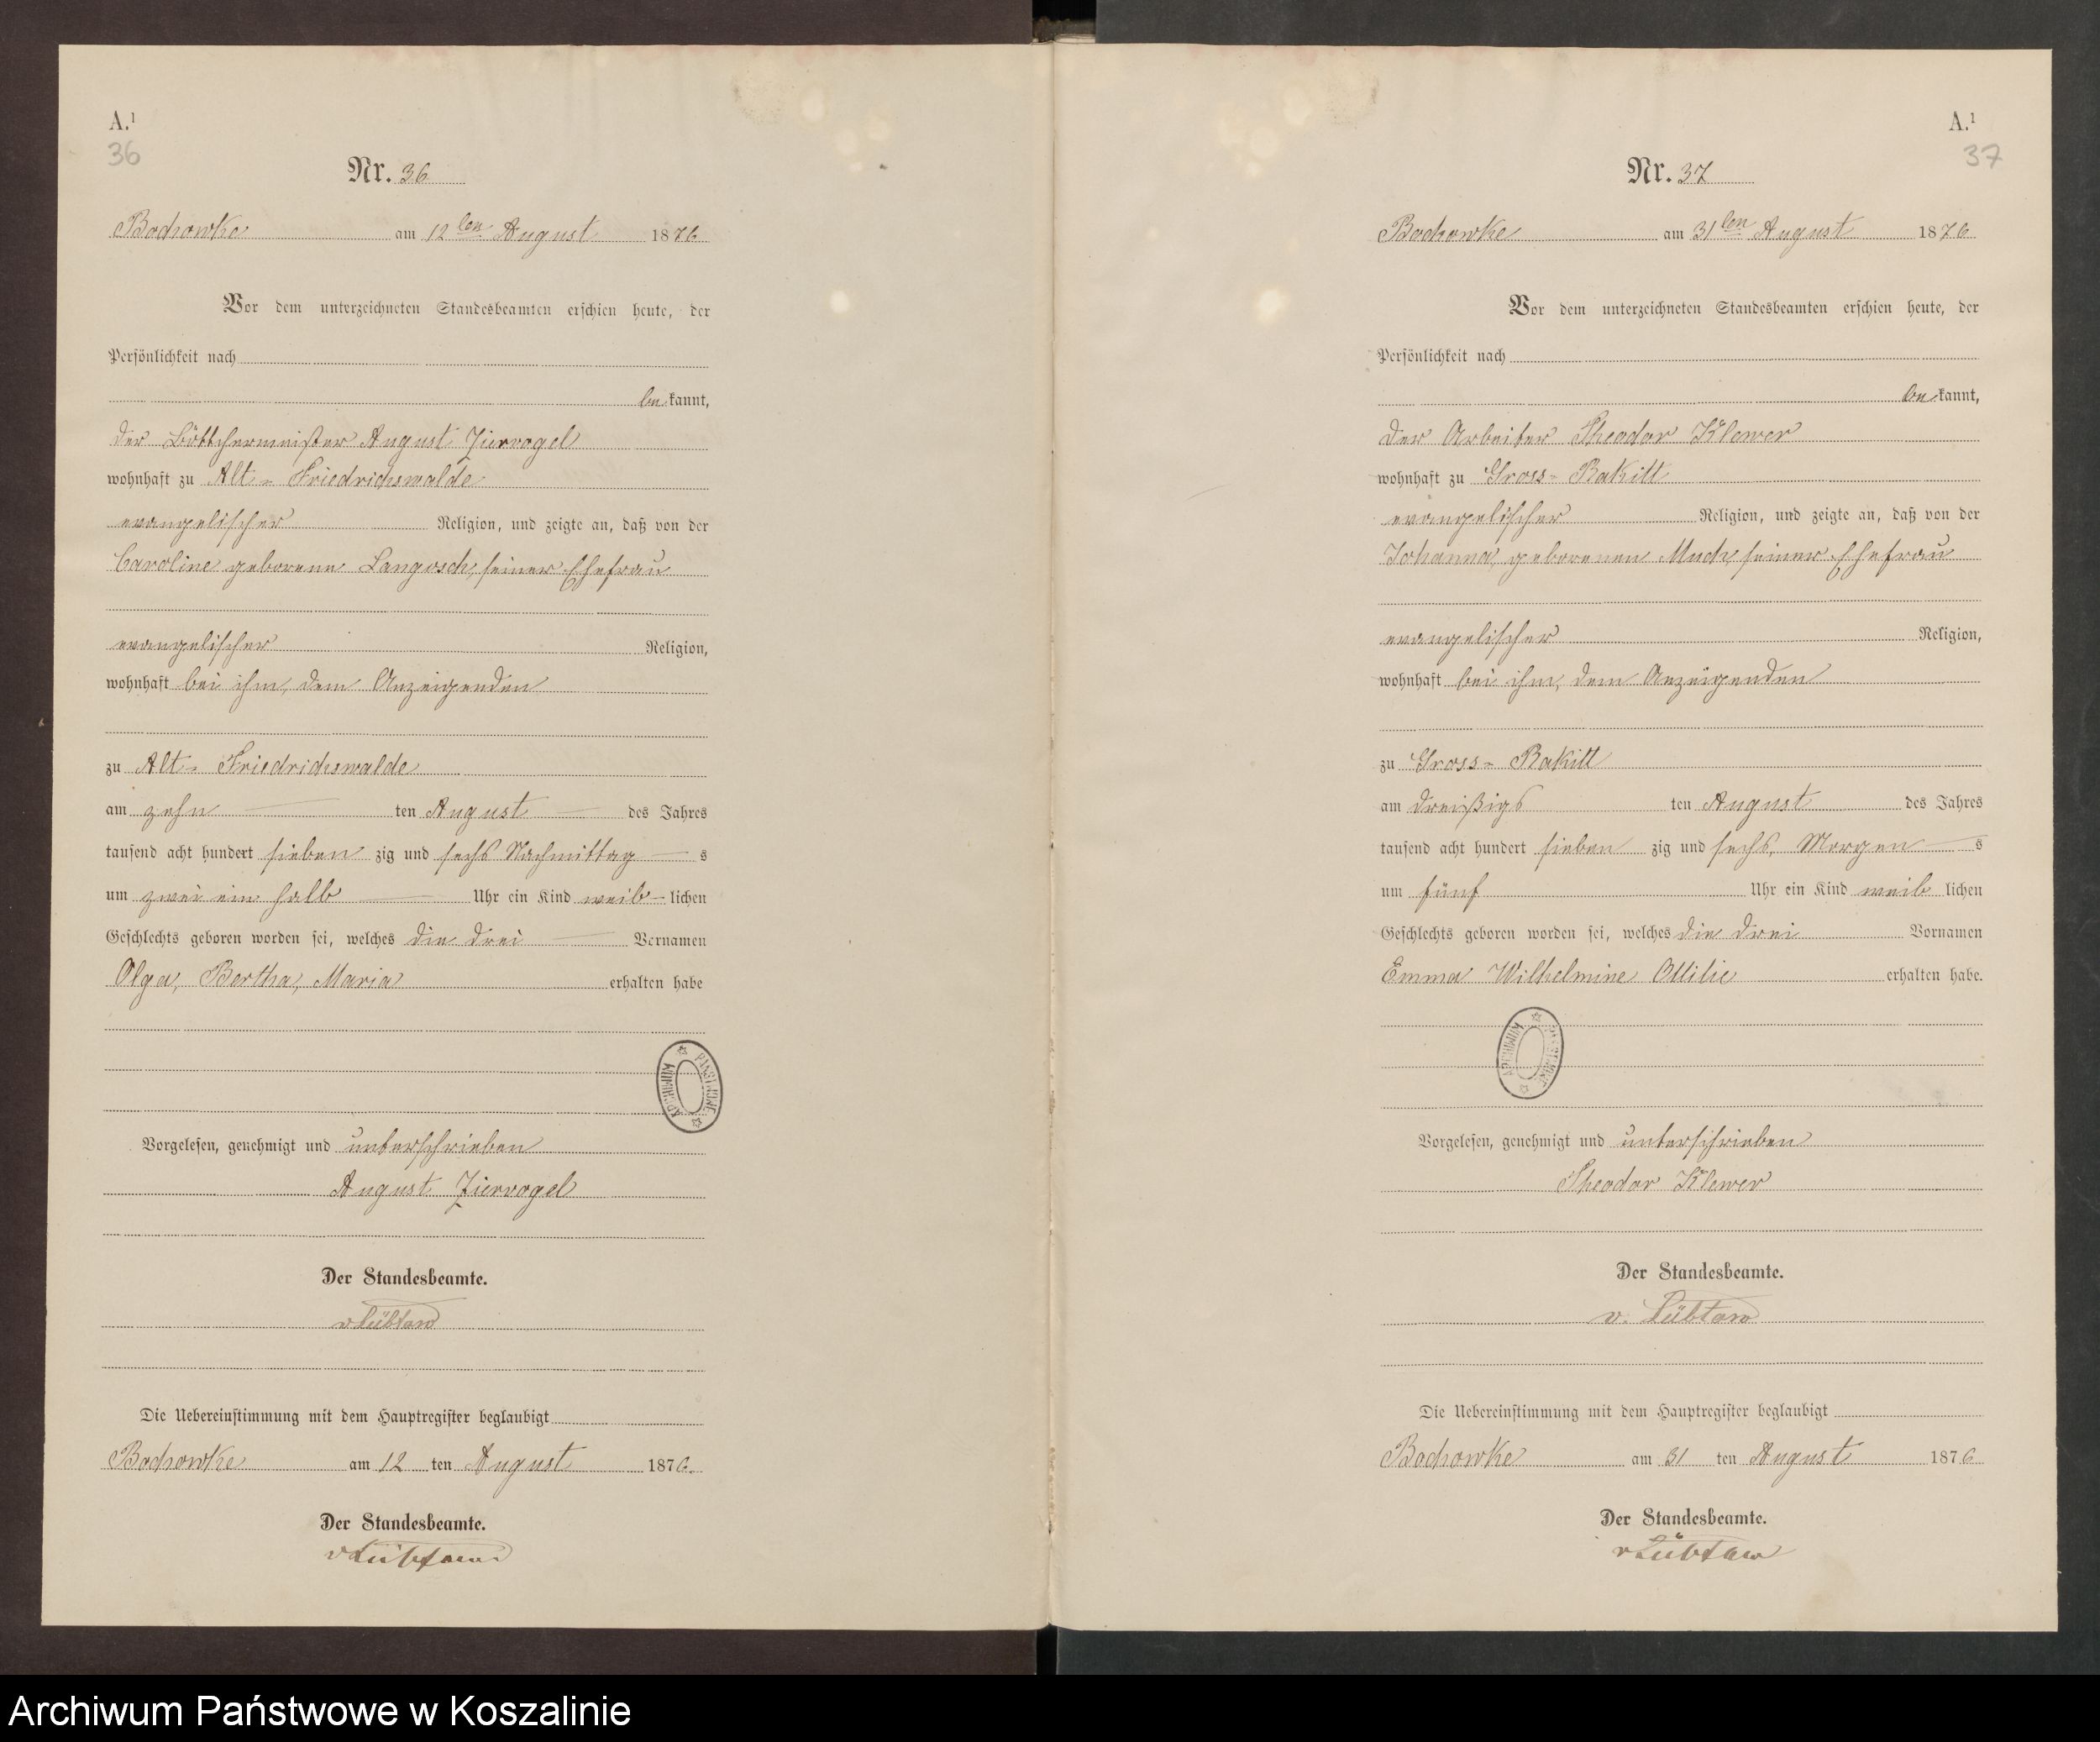 A.¹
36
Nr. 36
Bochowke am 12ten August 1876
Vor dem unterzeichneten Standesbeamten erschien heute, der
Persönlichkeit nach
be kannt,
der Böttchermeister August Ziervogel
wohnhaft zu Alt-Friedrichswalde
evangelischer Religion, und zeigte an, daß von der
Caroline geborene Langosch, seiner Ehefrau
evangelischer Religion,
wohnhaft bei ihm, dem Anzeigenden
zu Alt-Friedrichswalde
am zehn ten August des Jahres
tausend acht hundert sieben zig und sechs Nachmittag s
um zwei ein halb Uhr ein Kind weib lichen
Geschlechts geboren worden sei, welches die drei Vornamen
Olga, Bertha, Maria erhalten habe
ARCHIWUM PAŃSTWOWE
Vorgelesen, genehmigt und unterschrieben
August Ziervogel
Der Standesbeamte.
v Lübtow
Die Uebereinstimmung mit dem Hauptregister beglaubigt
Bochowke am 12 ten August 1876.
Der Standesbeamte.
v Lübtow
A.¹
37
Nr. 37
Bochowke am 31ten August 1876
Vor dem unterzeichneten Standesbeamten erschien heute, der
Persönlichkeit nach
be kannt,
der Arbeiter Theodor Klewer
wohnhaft zu Gross-Rakitt
evangelischer Religion, und zeigte an, daß von der
Johanna, geborenen Much, seiner Ehefrau
evangelischer Religion,
wohnhaft bei ihm, dem Anzeigenden
zu Gross-Rakitt
am dreißigs ten August des Jahres
tausend acht hundert sieben zig und sechs, Morgen s
um fünf Uhr ein Kind weib lichen
Geschlechts geboren worden sei, welches die drei Vornamen
Emma Wilhelmine Ottilie erhalten habe.
ARCHIWUM PAŃSTWOWE
Vorgelesen, genehmigt und unterschrieben
Theodor Klewer
Der Standesbeamte.
v. Lübtow
Die Uebereinstimmung mit dem Hauptregister beglaubigt
Bochowke am 31 ten August 1876
Der Standesbeamte.
v Lübtow
Archiwum Państwowe w Koszalinie